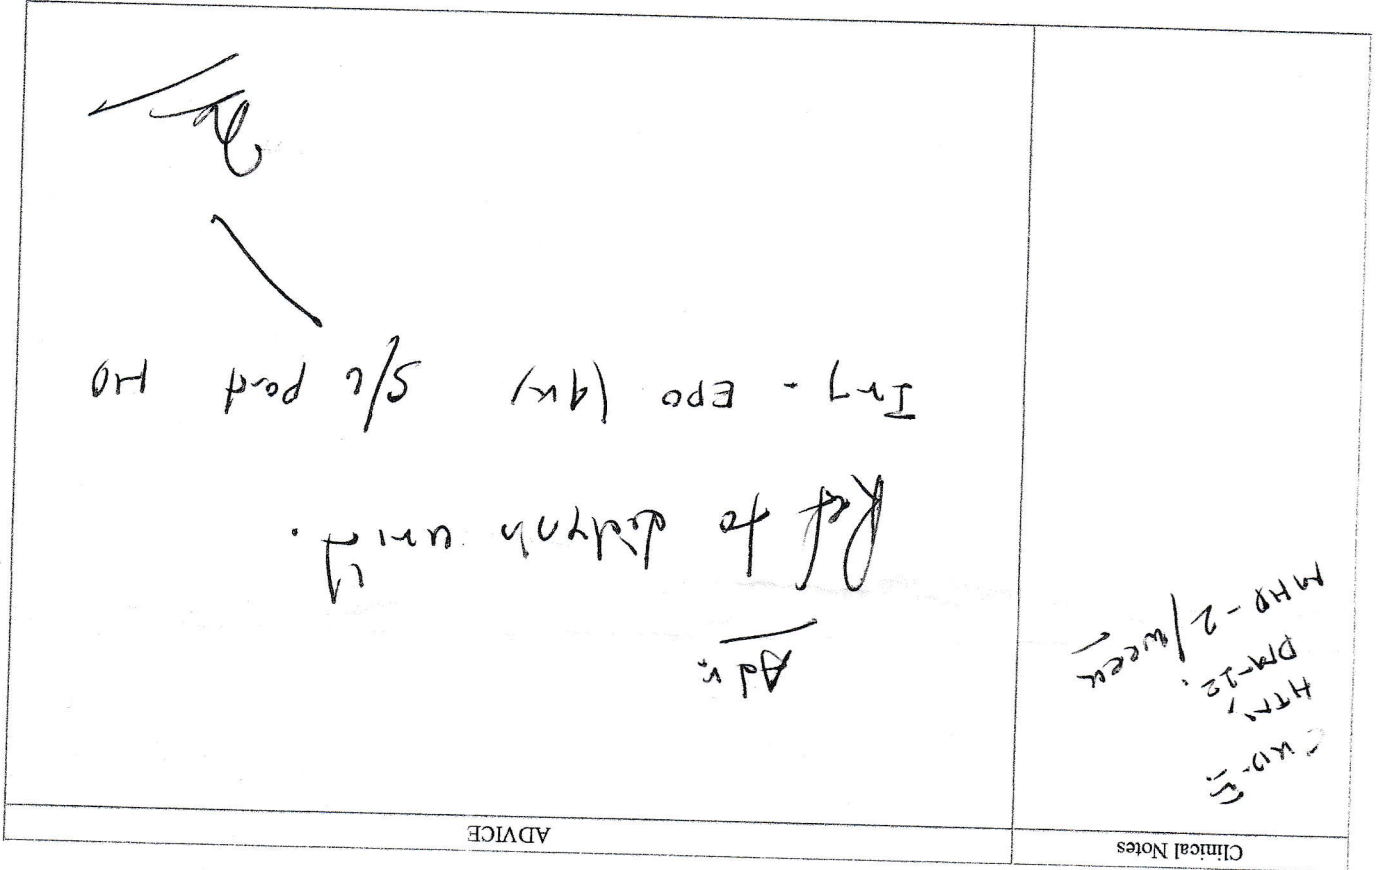 Clinical Notes
ADVICE
CKD-
HTN,
DM-
MHD-2/week
Adv:
Ref to dialysis unit.
Inj - EPO (4K) S/C post HD